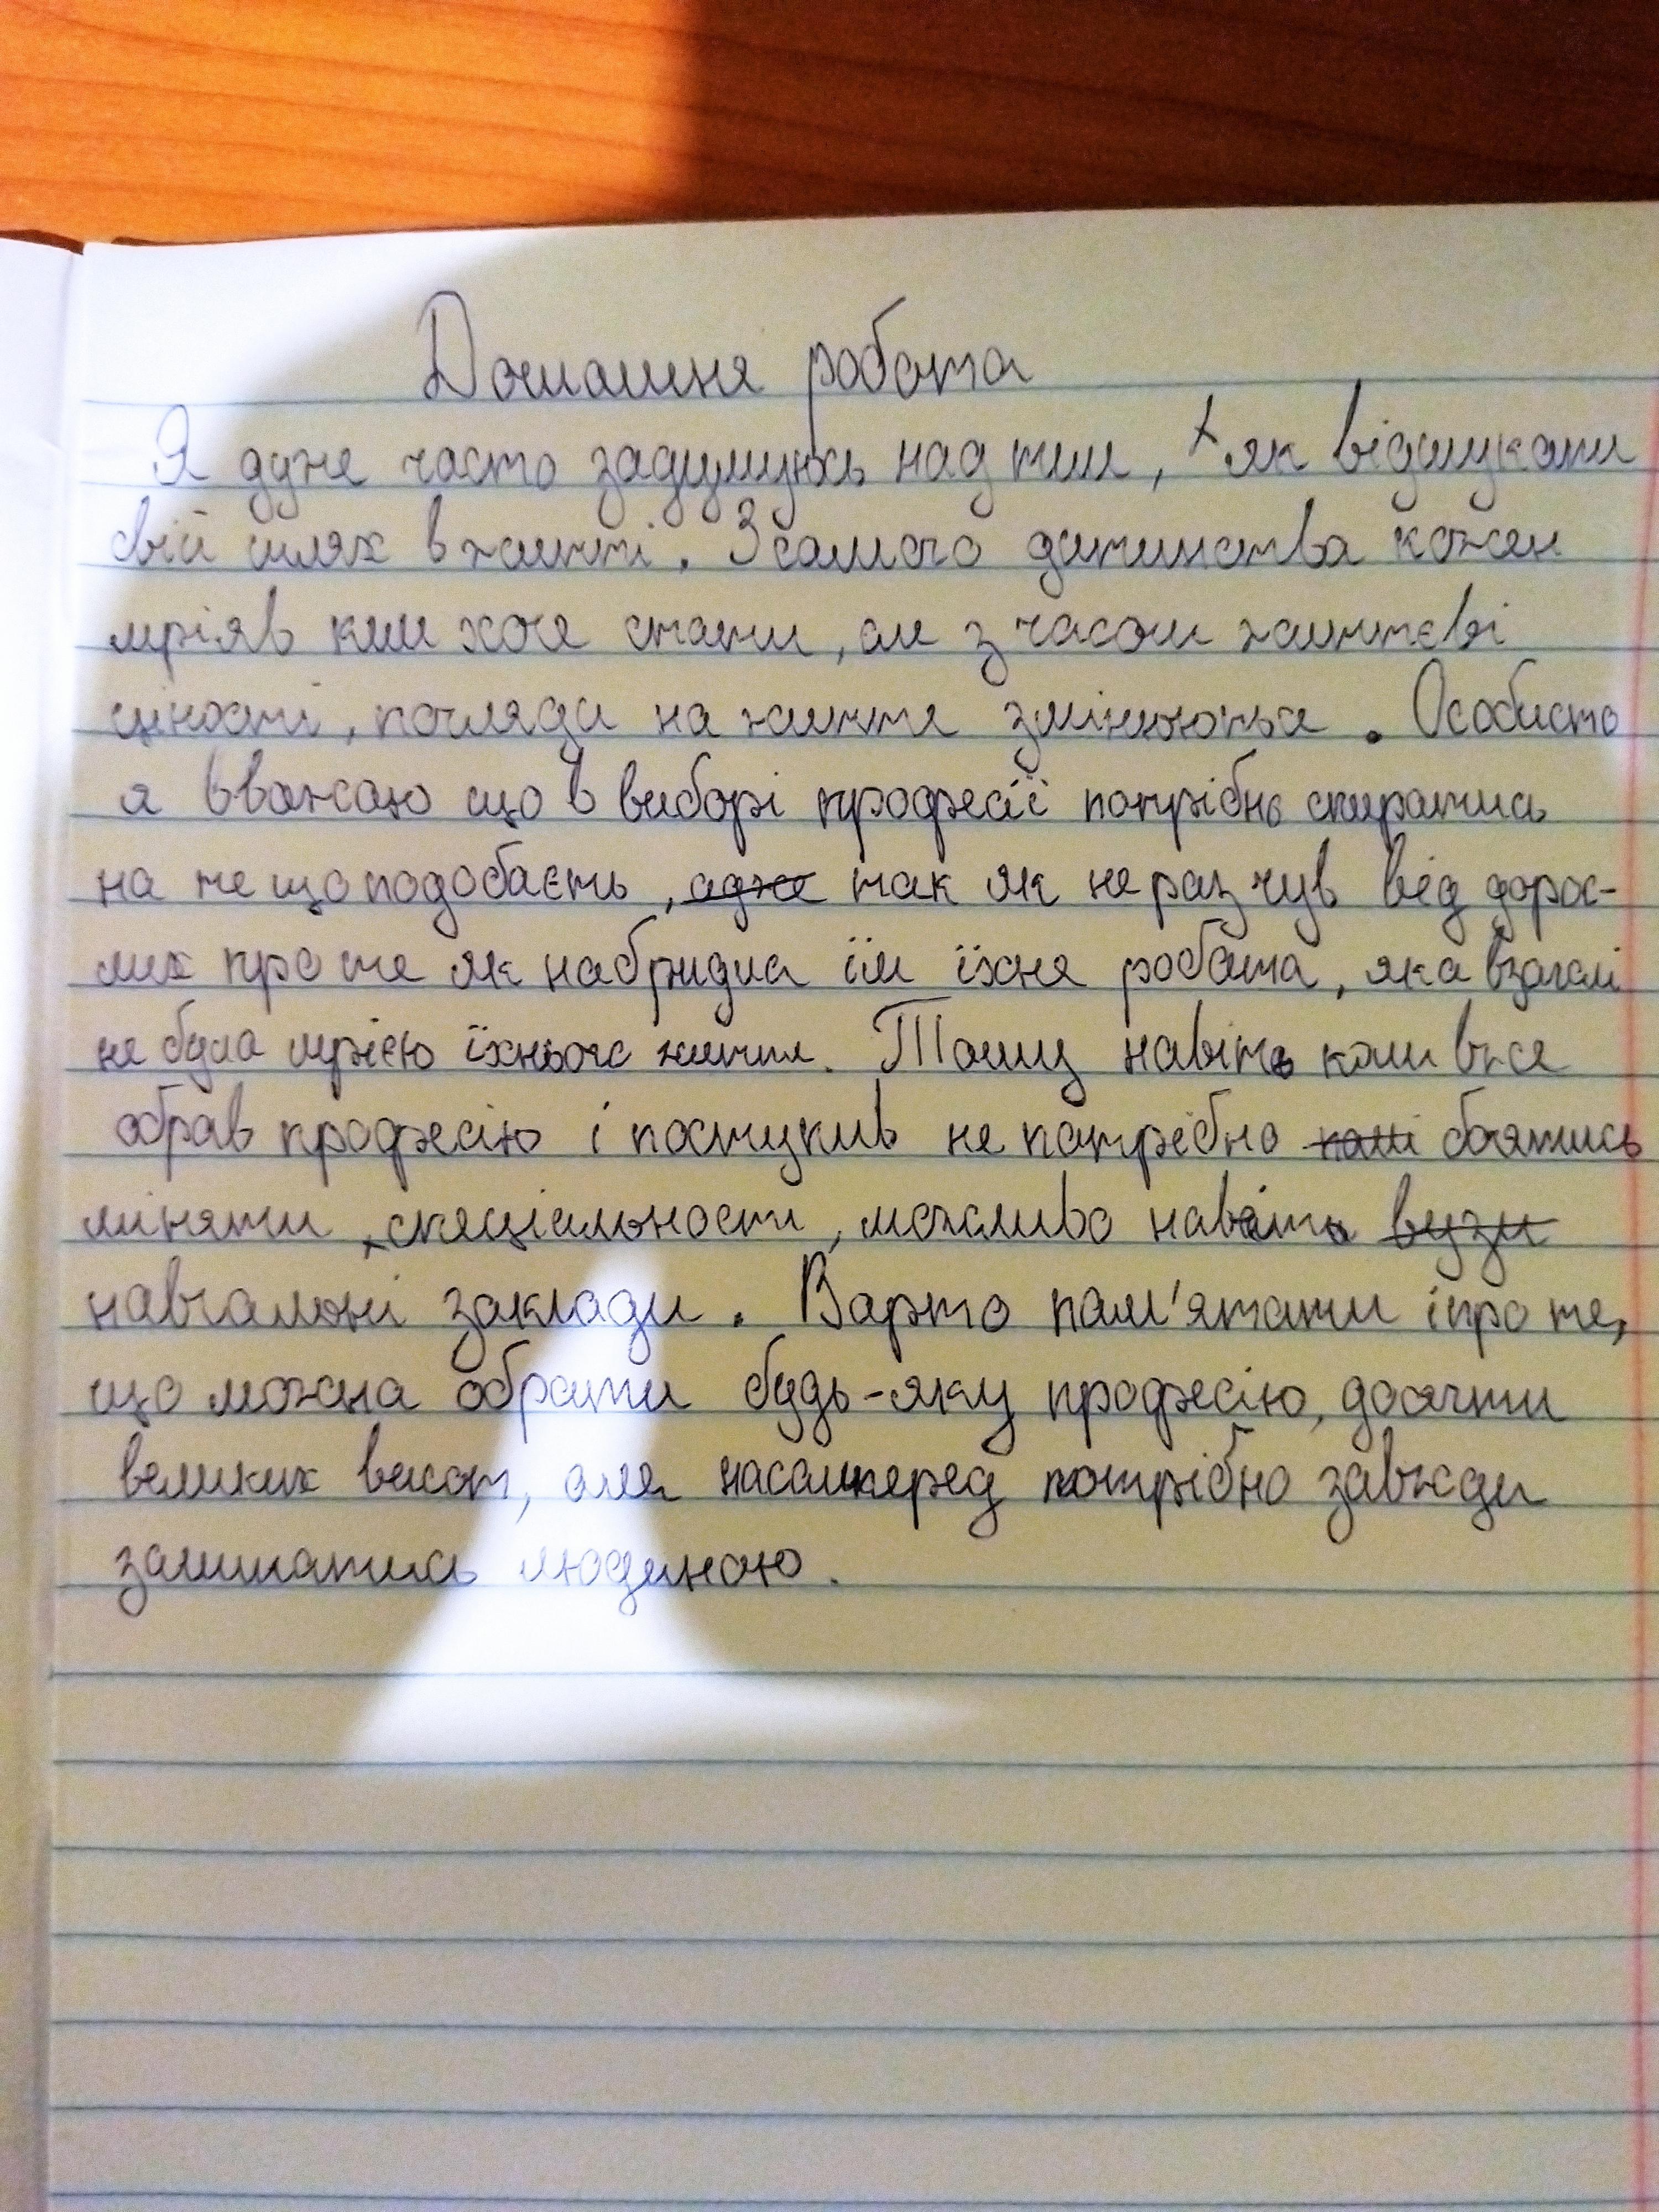 Домашня робота
Я дуже часто задумуюсь над тим, як відшукати
свій шлях в житті. З самого дитинства кожен
мріяв ким хоче стати, але з часом життєві
цінності, погляди на життя змінюються. Особисто
я вважаю що в виборі професії потрібно спиратись
на те що подобаєть, адже так як не раз чув від дорос-
лих про те як набридла їм їхня робота, яка взагалі
не була мрією їхнього життя. Тому навіть коли вже
обрав професію і поступив не потрібно боятись
міняти спеціальності, можливо навіть вузи
навчальні заклади. Варто пам'ятати і про те,
що можна обрати будь-яку професію, досягти
великих висот, але насамперед потрібно завжди
залишатись людиною.